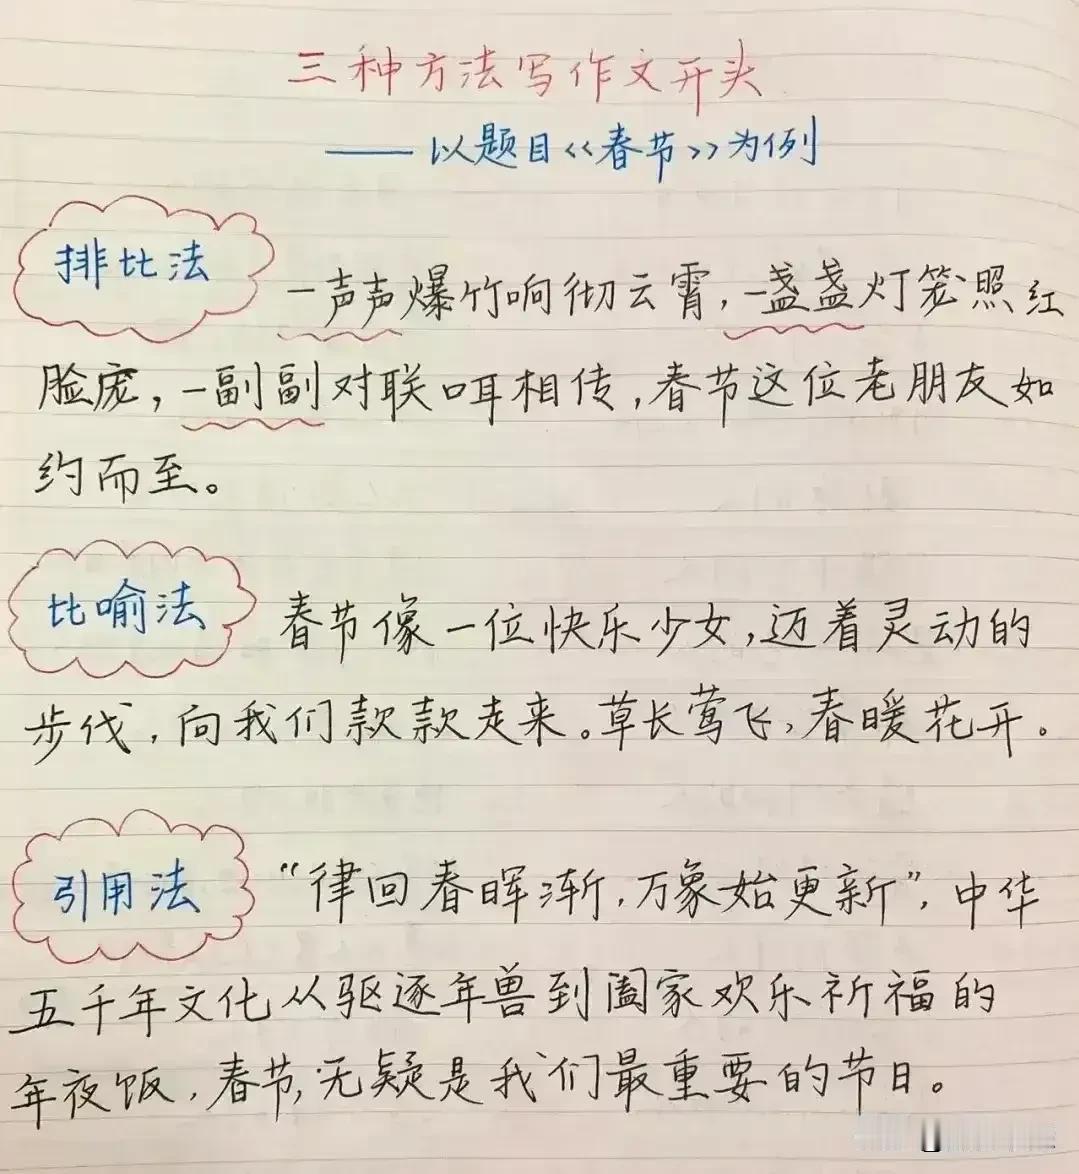 三种方法写作文开头
——以题目《春节》为例
排比法
一声声爆竹响彻云霄,一盏盏灯笼照红
脸庞,一副副对联咡相传,春节这位老朋友如
约而至。
比喻法
春节像一位快乐少女,迈着灵动的
步伐,向我们款款走来。草长莺飞,春暖花开。
引用法
“律回春晖渐,万象始更新”,中华
五千年文化从驱逐年兽到阖家欢乐祈福的
年夜饭,春节,无疑是我们最重要的节日。